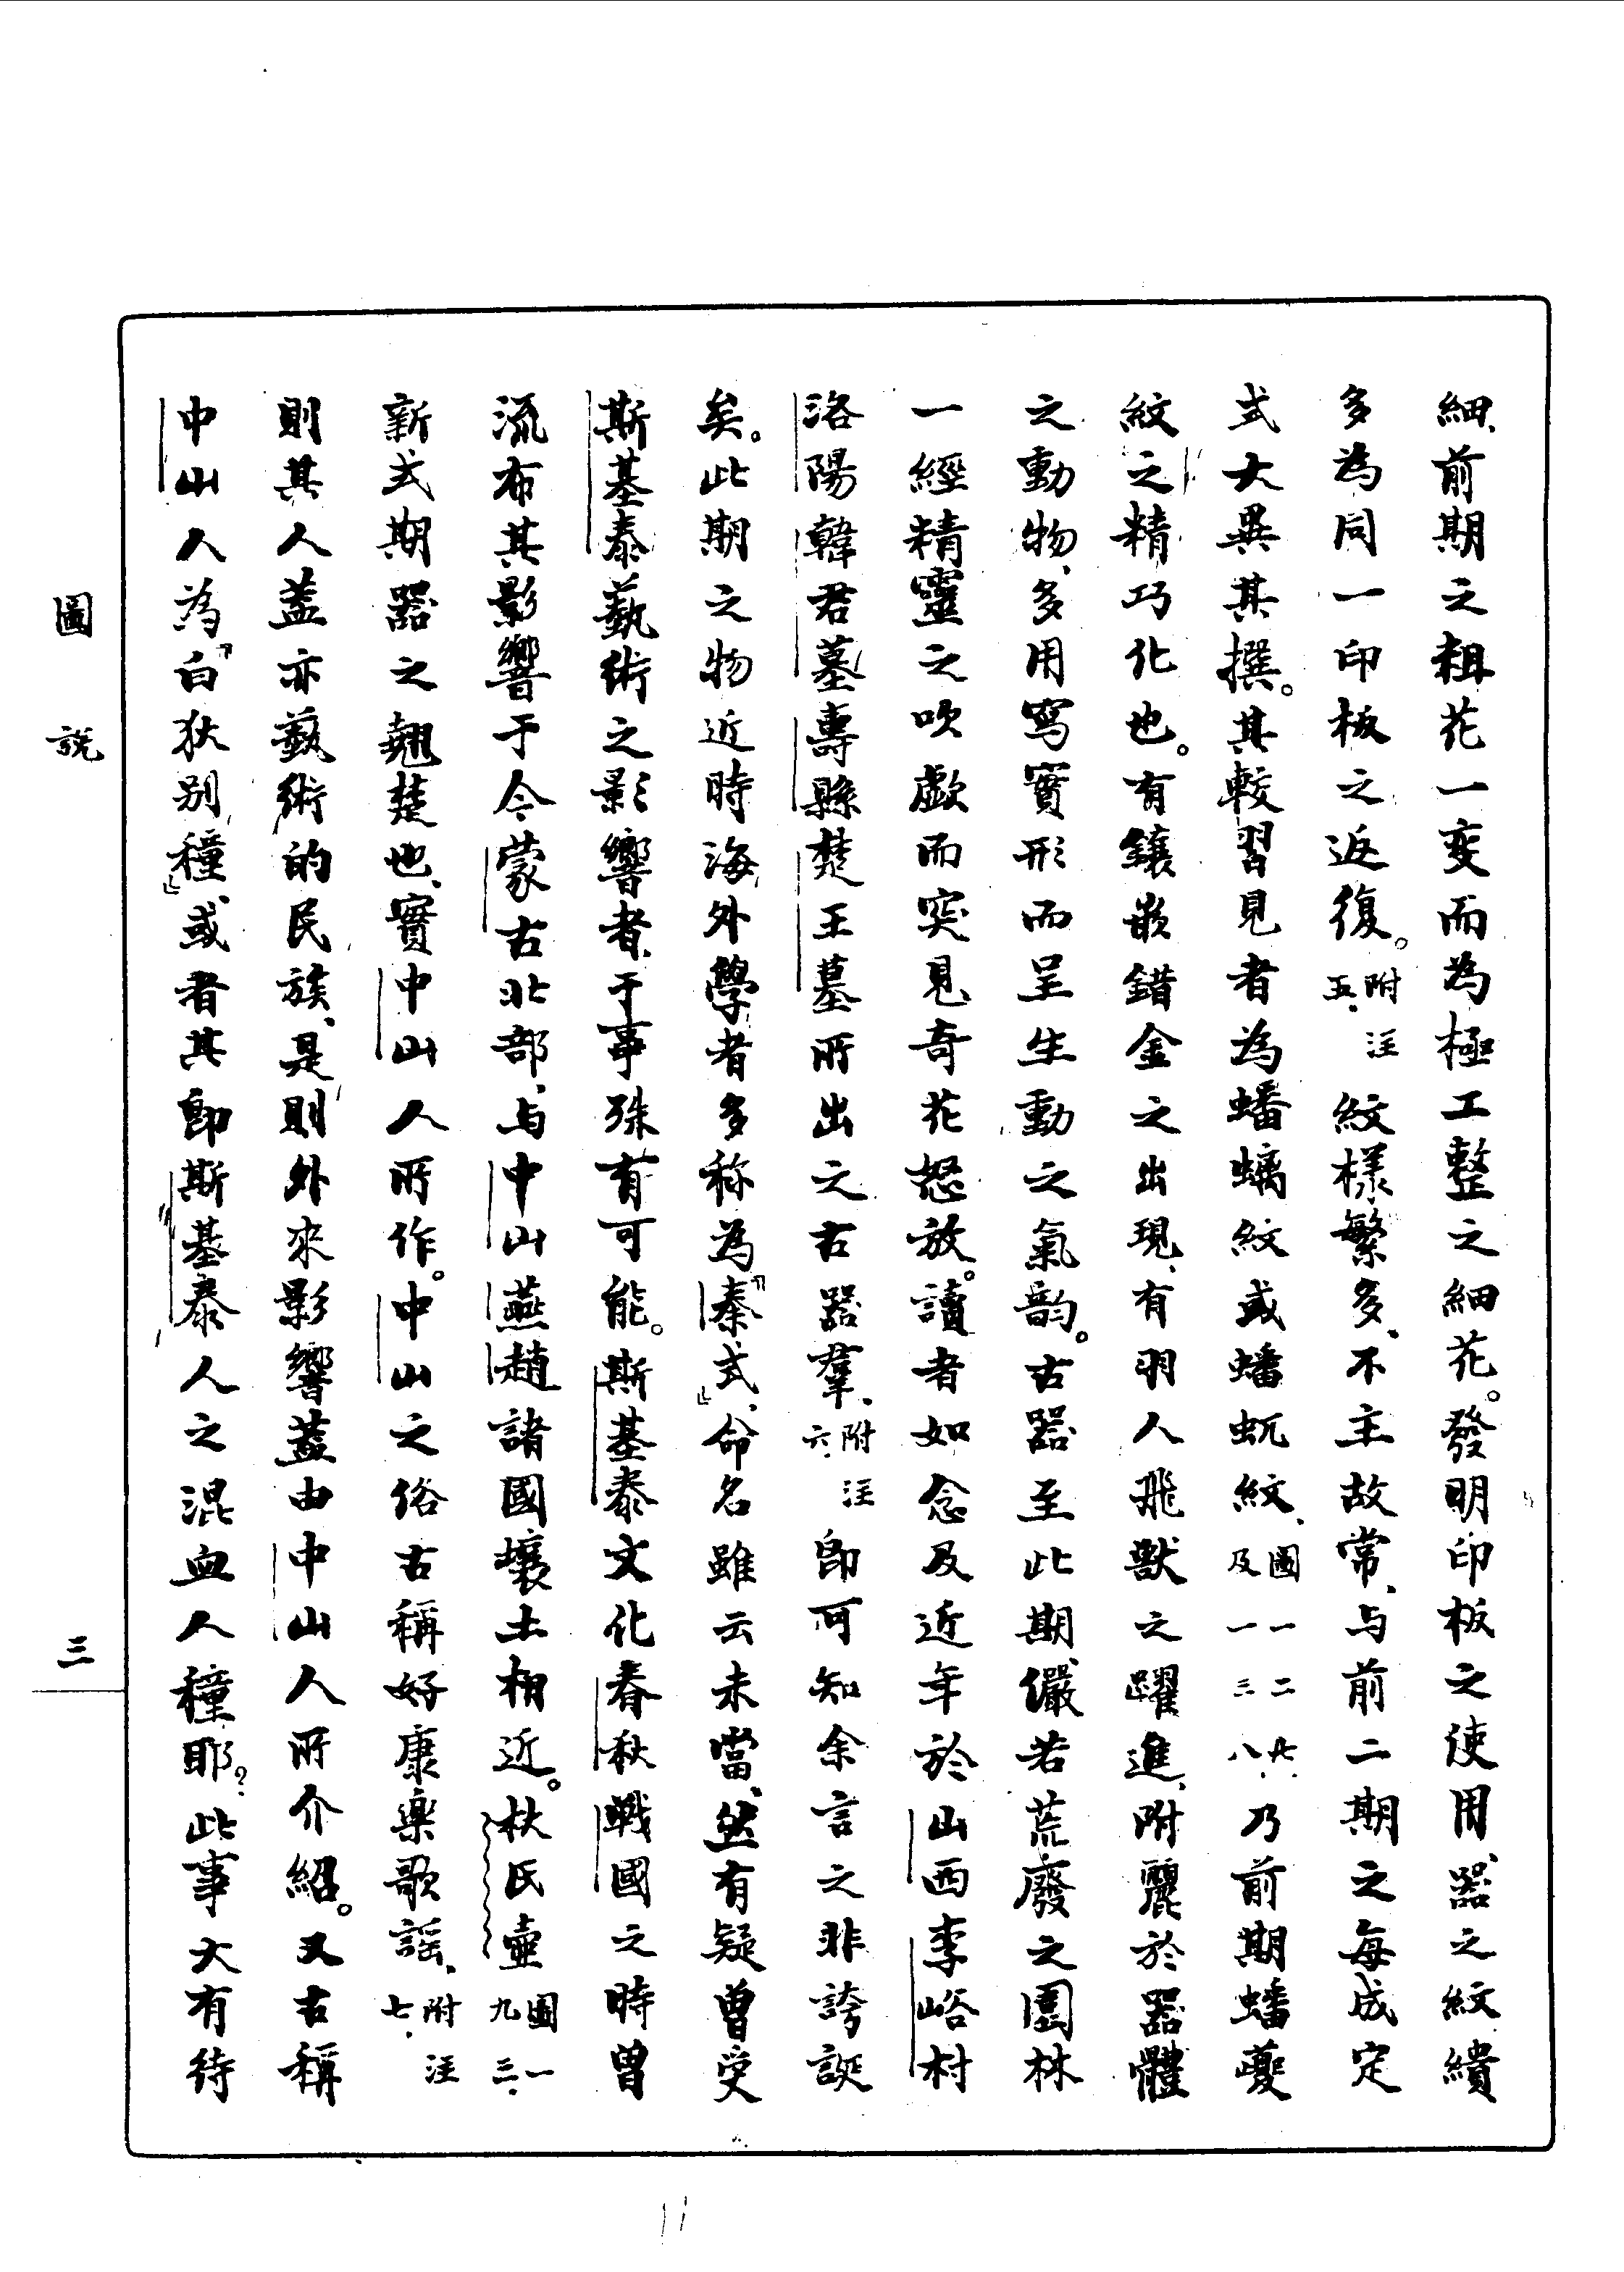 細、前期之粗花一变而為極工整之細花。發明印板之使用、器之紋繢
多為同一印板之返復。附注五、紋樣繁多、不主故常、与前二期之每成定
式大異其撰。其較習見者為蟠螭紋或蟠虺紋、圖一二七、及一三八、乃前期蟠夔
紋之精巧化也。有鑲嵌錯金之出現、有羽人飛獸之躍進、附麗於器體
之動物、多用寫實形而呈生動之氣韵。古器至此期、儼若荒廢之園林
一經精靈之吹歔而突見奇花怒放。讀者如念及近年於山西李峪村
洛陽韓君墓壽縣楚王墓所出之古器羣、附注六、即可知余言之非誇誕
矣。此期之物近時海外學者多称為『秦式』、命名雖云未當、然有疑曾受
斯基泰藝術之影響者、于事殊有可能。斯基泰文化春秋戰國之時曾
流布其影響于今蒙古北部、与中山燕趙諸國壤土相近。杕氏壺圖一九三、
新式期器之翹楚也、實中山人所作。中山之俗古稱好康樂歌謡、附注七、
則其人蓋亦藝術的民族、是則外來影響蓋由中山人所介紹。又古稱
中山人為『白狄別種』、或者其即斯基泰人之混血人種耶？此事大有待
圖說
三